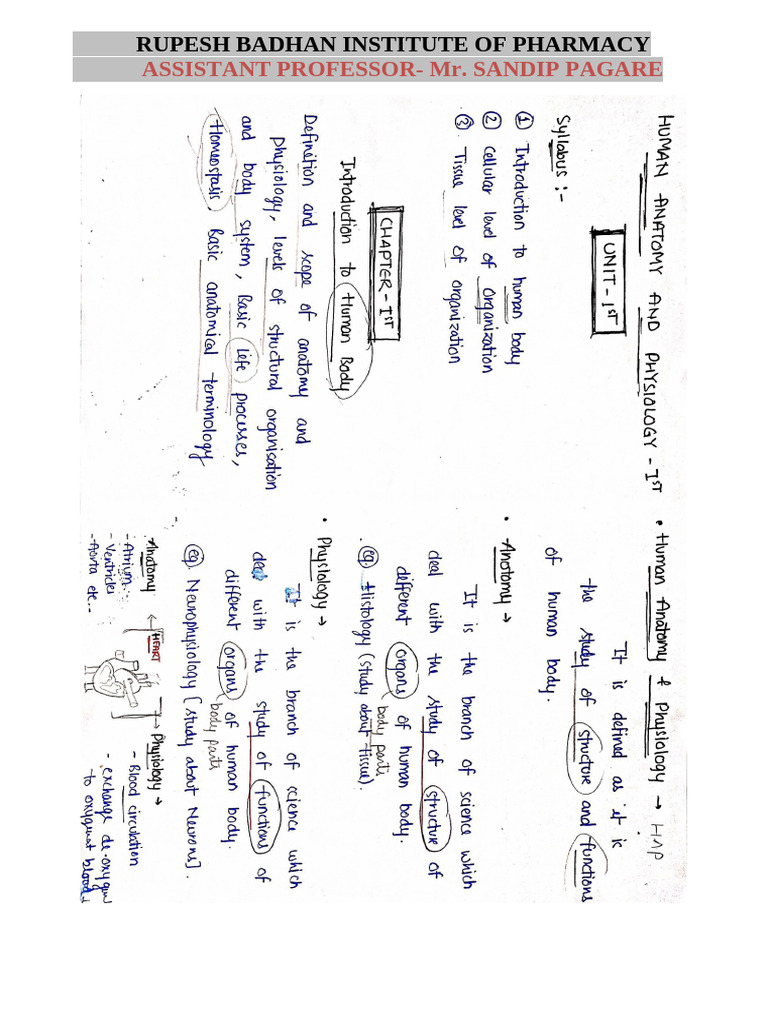 RUPESH BADHAN INSTITUTE OF PHARMACY
ASSISTANT PROFESSOR- Mr. SANDIP PAGARE
HUMAN ANATOMY AND PHYSIOLOGY - IST
UNIT - IST
Syllabus :-
① Introduction to human body
② Cellular level of organization
③. Tissue level of organization
CHAPTER - IST
Introduction to Human Body
Definition and scope of anatomy and
physiology, levels of structural organisation
and body system, Basic life processes,
Homeostasis Basic anatomical terminology
• Human Anatomy & Physilology → HAP
It is defined as it is
the study of structure and functions
of human body.
• Anatomy →
It is the branch of science which
deal with the study of structure of
different organs of human body.
body parts
eg. Histology (study about tissue).
• Physiology →
It is the branch of science which
deal with the study of functions of
different organs of human body.
body parts
eg. Neurophysiology [study about Neurons].
Anatomy
- Atrium
- Ventricles
- Aorta etc..
HEART
→ Physiology →
- Blood circulation
- exchange de-oxygen
to oxygenat blood